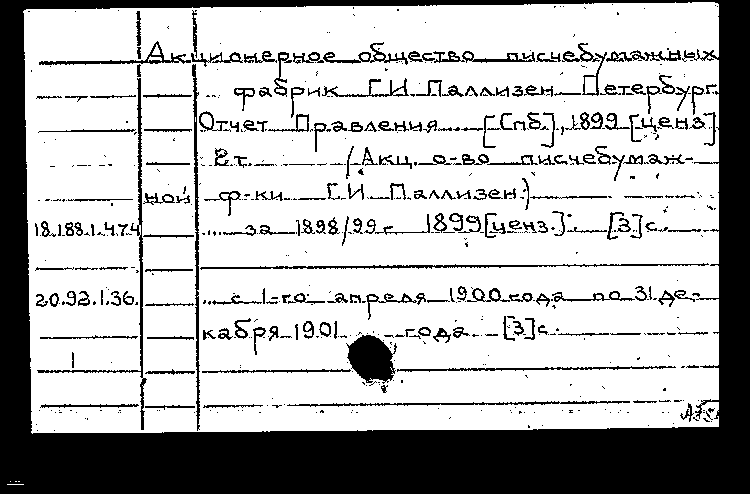 Акционерное общество писчебумажных
фабрик Г.И. Паллизен. Петербург.
Отчет Правления .... [Спб.], 1899 [ценз]
2т. (Акц. о-во писчебумаж-
ной ф-ки Г.И. Паллизен.)
18.188.1.474 .... за 1898/99 г. 1899 [ценз.]. [3] с.
20.92.1.36. ... с 1-го апреля 1900 года по 31 де-
кабря 1901 года. [3] с.